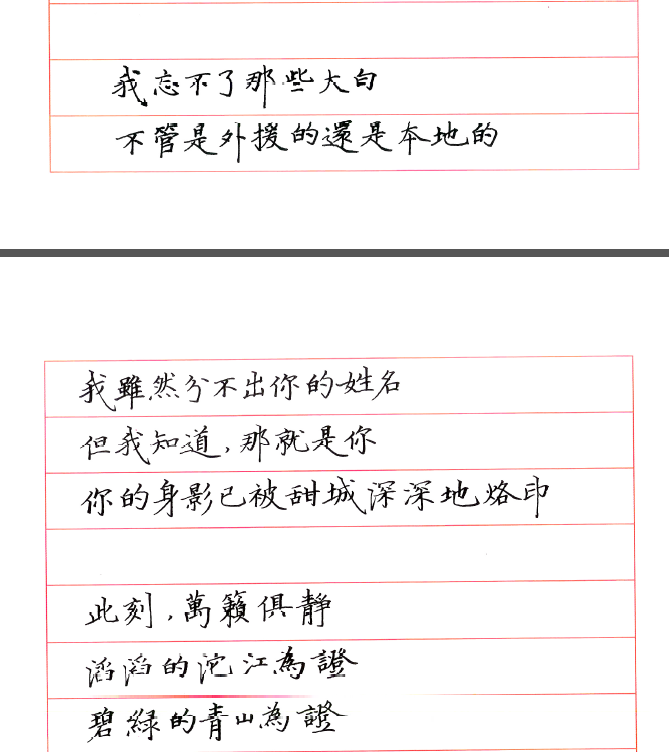 我忘不了那些大白
不管是外援的還是本地的
我雖然分不出你的姓名
但我知道,那就是你
你的身影已被甜城深深地烙印
此刻,萬籟俱靜
滔滔的沱江為證
碧綠的青山為證